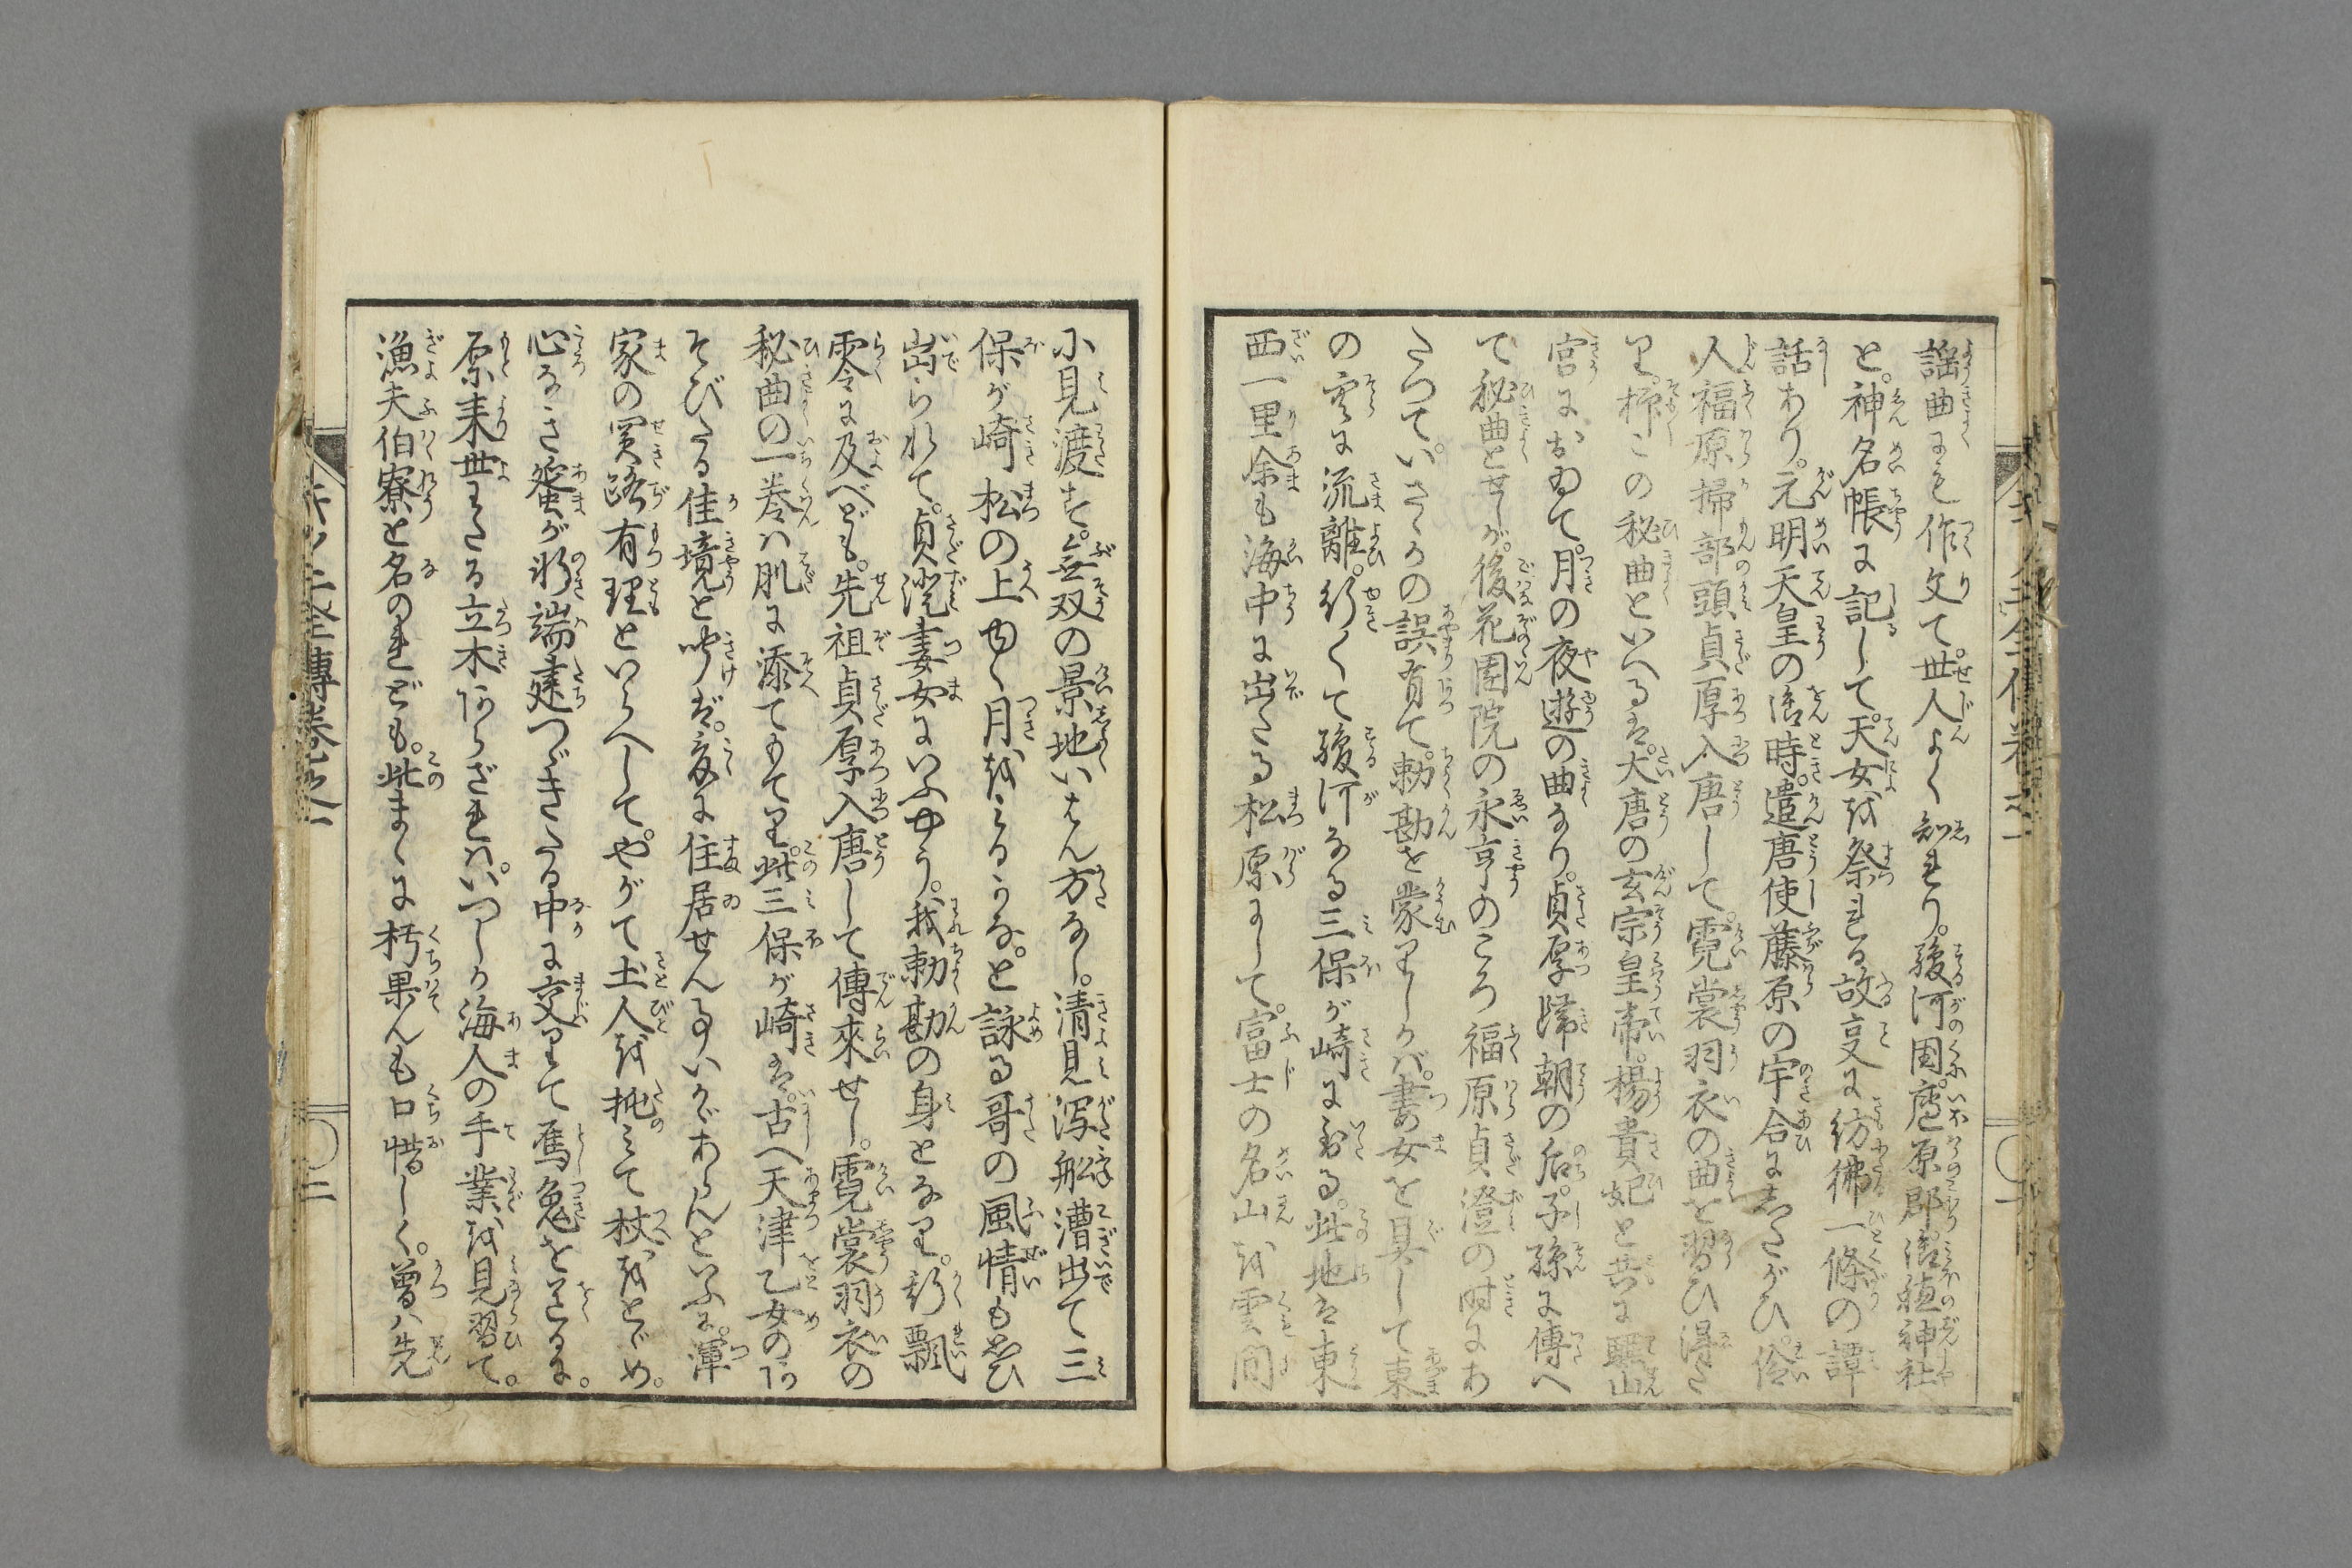 謡曲にも作文て。世人よく知れり。駿河国廬原郡御穂神社
と。神名帳に記して。天女を祭れる故支に彷彿一條の譚
話あり。元明天皇の御時。遣唐使藤原の宇合にしたがひ。伶
人福原掃部頭貞厚入唐して。霓裳羽衣の曲を習ひ得た
り。抑この秘曲といへるは。大唐の玄宗皇帝。楊貴妃と共に驪山
宮におゐて。月の夜遊の曲なり。貞厚帰朝の后。子孫に傳へ
て秘曲とせしが。後花園院の永享のころ福原貞澄の時にあ
たつて。いさゝかの誤有て。勅勘を蒙りしかば。妻女を具して東
の空に流離。行〳〵て駿河なる三保が崎に到る。此地は東
西一里余も海中に出たる松原にして。富士の名山を雲間
に見渡せば。無双の景地いはん方なし。清見泻舩漕出て三
保が崎松の上ゆく月をみるかな。と詠る哥の風情も思ひ
出られて。貞澄妻女にいふやう。我勅勘の身となり。斯飄
零に及べども。先祖貞厚入唐して傳來せし。霓裳羽衣の
秘曲の一巻は肌に添てもてり。此三保が崎は。古へ天津乙女の天
そびたる佳境と聞けば。爰に住居せん事いかゞあらんといふに。渾
家の実路有理といらへして。やがて土人を托みて杖をとゞめ。
心なき蜑が軒端建つゞきたる中に交りて烏兎を送るに。
原来世わたる立木あらざれば。いつしか海人の手業を見習て。
漁夫伯寮と名のれども。此まゝに朽果んも口惜しく。曽は先